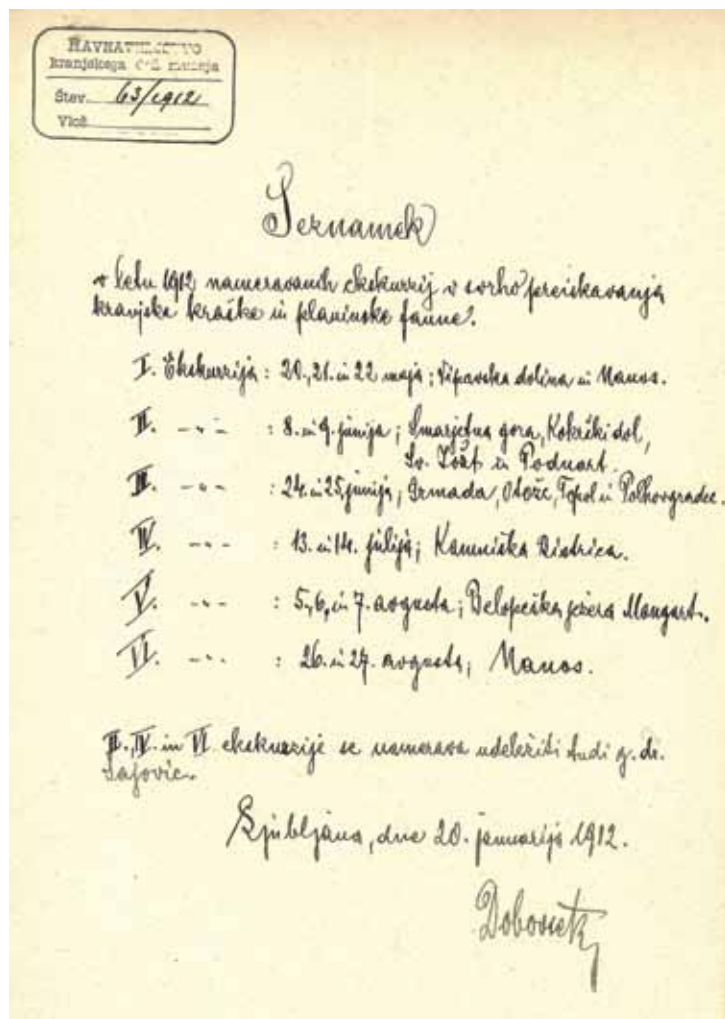 RAVNATELJSTVO
kranjskega dež. muzeja
Štev. 63/1912
Vlož.
Seznamek
v letu 1912 nameravanih ekskurzij v svrho preiskavanja
kranjske kraške in planinske faune.
I. Ekskurzija: 20., 21. in 22 maja; Vipavska dolina in Nanos.
II. -„- : 8. in 9. junija; Šmarjetna gora, Kokriški dol,
Sv. Jošt in Podnart.
III. -„- : 24. in 25. junija; Grmada, Otože, Topol in Polhovgradec.
IV. -„- : 13. in 14. julija; Kamniška Bistrica.
V. -„- : 5., 6., in 7. avgusta; Belopeška jezera Mangart.
VI. -„- : 26. in 27. avgusta; Nanos.
II., IV. in VI ekskurzije se namerava udeležiti tudi g. dr.
Sajovic.
Ljubljana, dne 20. januarija 1912.